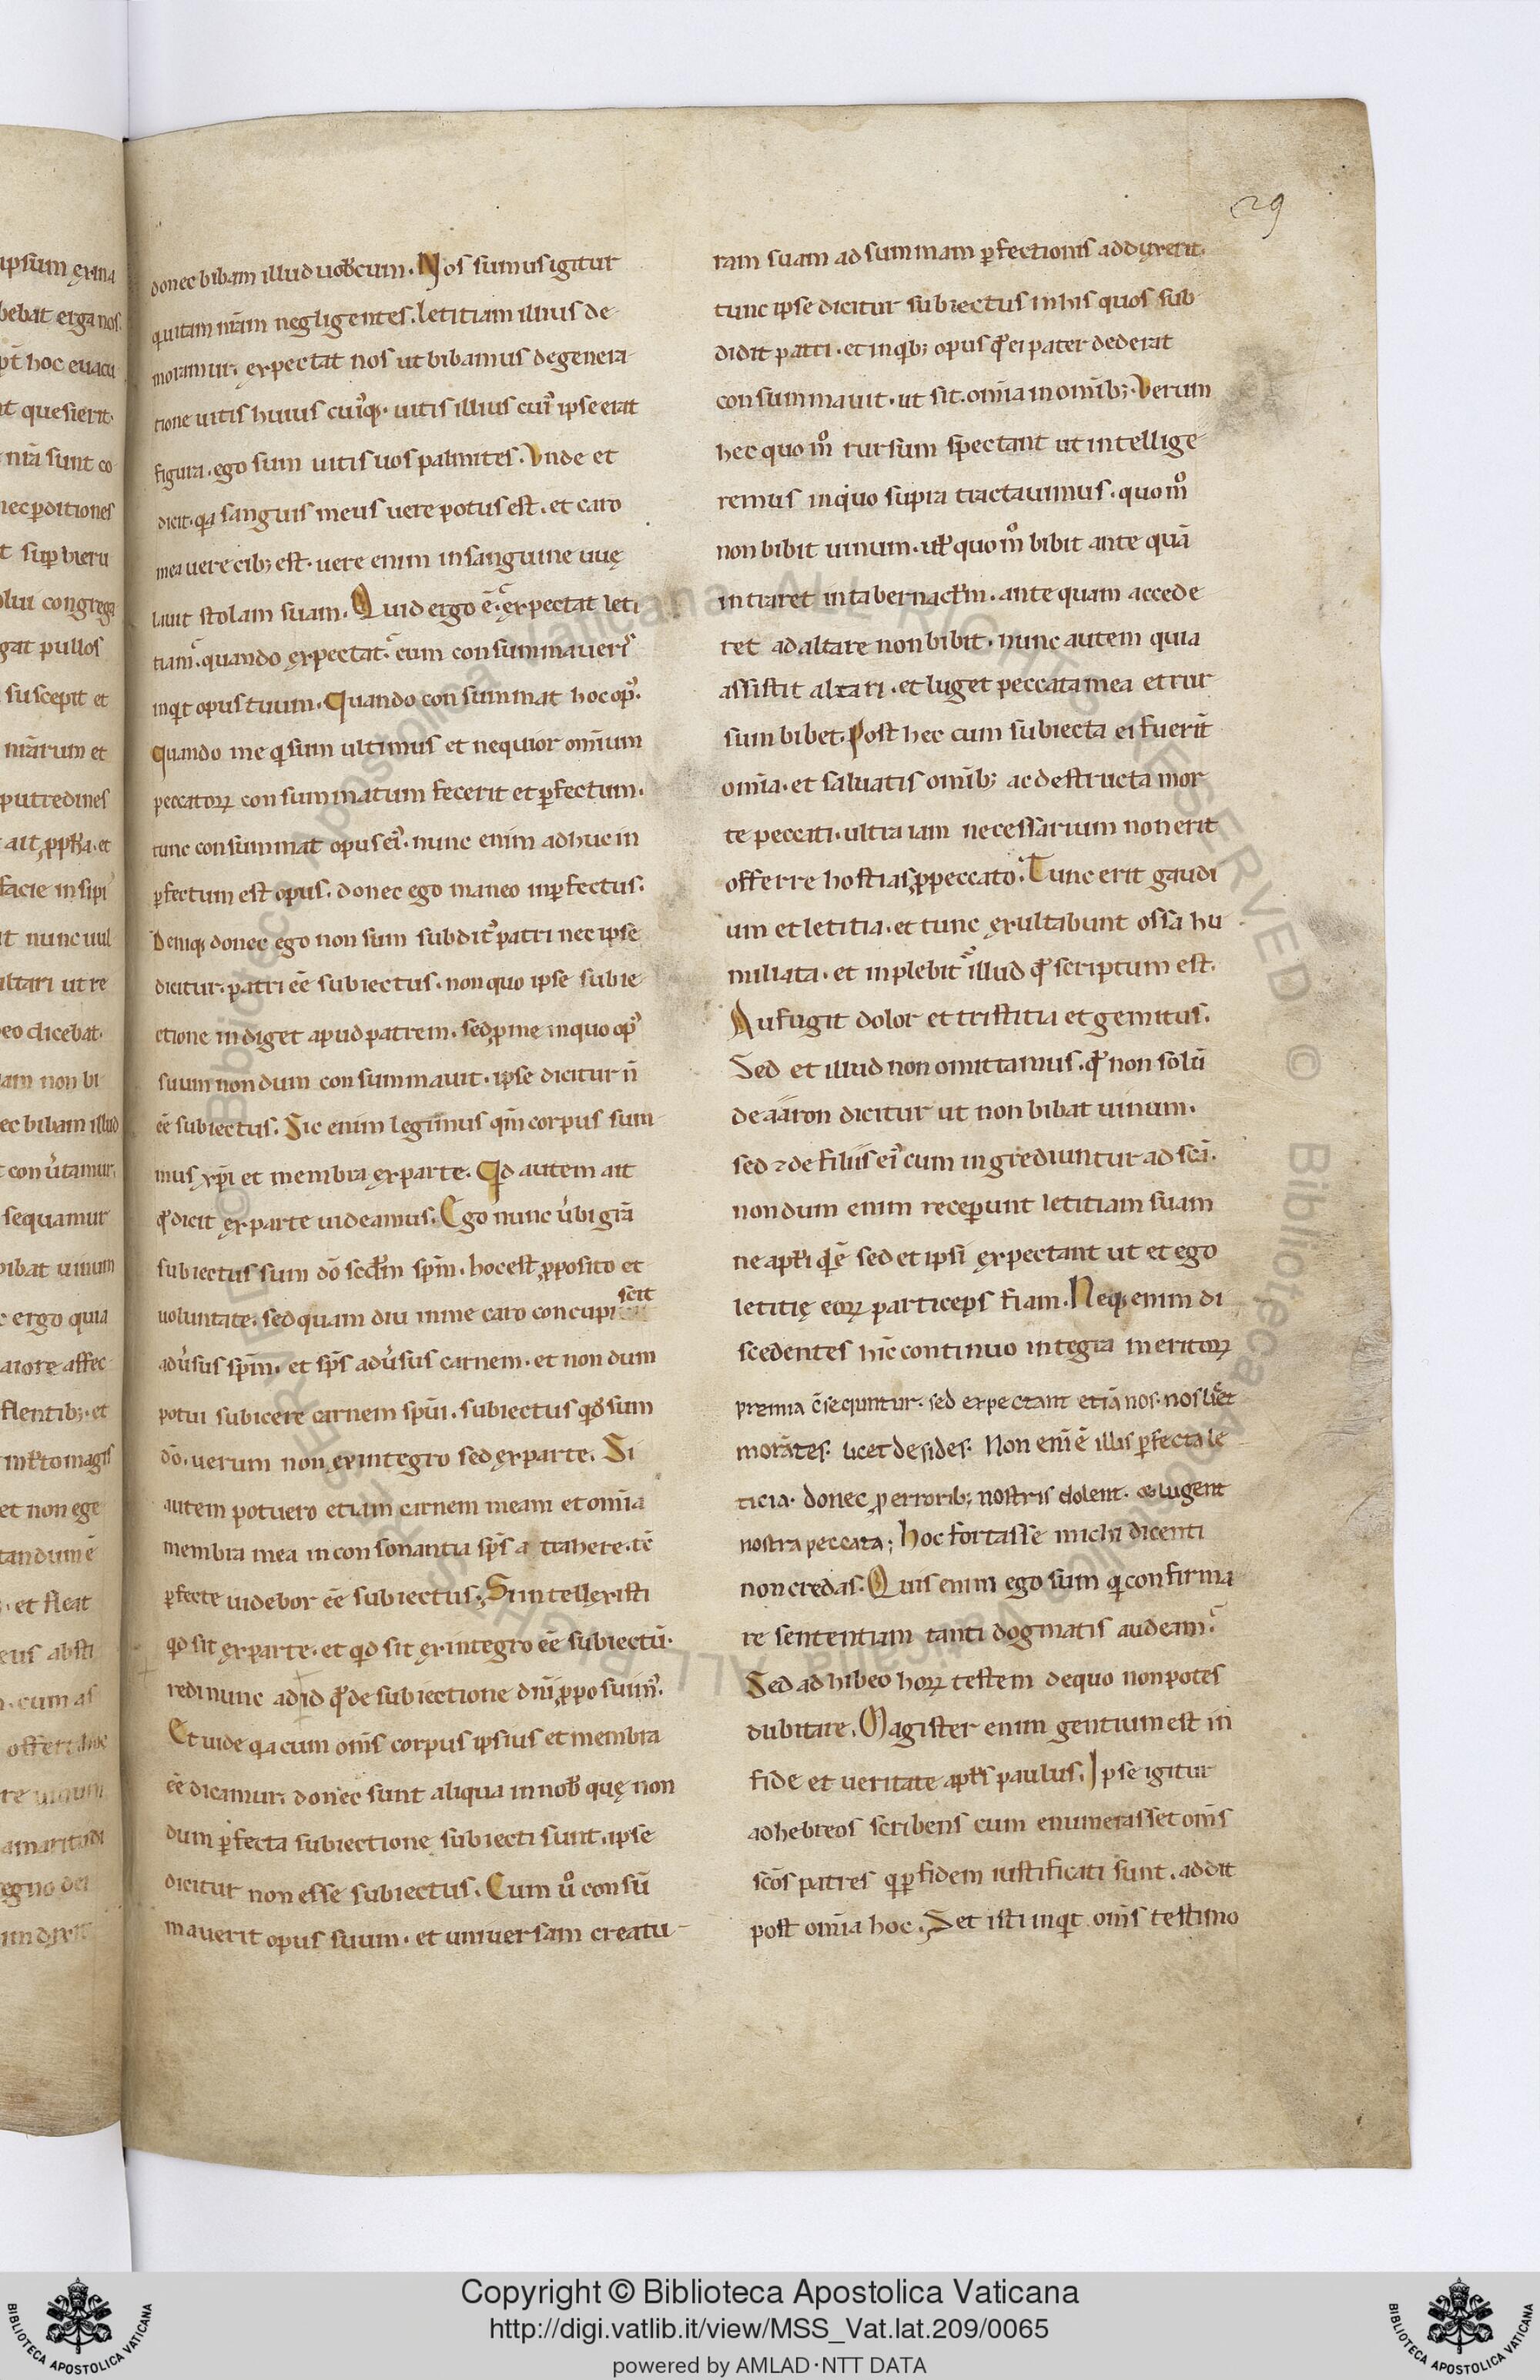 ipsum exina
bebat erga nos.
pt̄ hoc euacu
t quesierit.
nr̄a sunt co
nec pditiones
t supbieru
olui congrega
gat pullos
suscepit et
nr̄arum et
putredines
ait ppħa. et
facie insipi
t nunc uul
ltari ut re
eo dicebat.
am non bi
ec bibam illud
con útamur.
sequamur
bibat uinum
ergo quia
aiore affec
flentib; et
mtito magis
et non ege
tandum ē
. et fleat
eius absti
. cum as
offert
re uinum
amaritudi
egno dei
29
donec bibam illud uobcum. Nos sumus igitur
qui uitam nr̄am negligentes. letitiam illius de
moramur. expectat nos ut bibamus de genera
tione uitis huius cuiq;. uitis illius cui' ipse erat
figura. ego sum uitis uos palmites. Vnde et
dicit. qa sanguis meus uere potus est. et caro
mea uere cib; est. uere enim in sanguine uuę
lauit stolam suam. Quid ergo ē. expectat leti
tiam. quando expectat. cum consummaueris
inqt opus tuum. Quando consummat hoc op'.
Quando me q sum ultimus et nequior omĩum
peccatoꝝ consummatum fecerit et pfectum.
tunc consummat opus ei'. nunc enim adhuc in
pfectum est opus. donec ego maneo inpfectus.
Deniq; donec ego non sum subdit' patri nec ipse
dicitur. patri eē subiectus. non quo ipse subie
ctione indiget apud patrem. sed p me in quo op'
suum nondum consummauit. ipse dicitur n̄
eē subiectus. Sic enim legimus qm̄ corpus sum
mus xp̄i et membra ex parte. Qd autem ait
qd dicit ex parte uideamus. Ego nunc úbi gr̄a
subiectus sum dō scdm sp̄m. hoc est pposito et
scit
uoluntate. sed quam diu in me caro concupi
adúsus sp̄m. et sp̄s adúsus carnem. et non dum
potui subicere carnem sp̄ui. subiectus qd sum
dō. uerum non ex integro sed ex parte. Si
autem potuero etiam carnem meam et omīa
membra mea in consonantia sp̄s a trahere. tē
pfecte uidebor eē subiectus. Si intellexisti
qd sit ex parte. et qd sit ex integro eē subiectū.
redi nunc ad id qd de subiectione dn̄i pposuim'.
Et uide qa cum om̄s corpus ipsius et membra
eē dicamur. donec sunt aliqua in nob quę non
dum pfecta subiectione subiecti sunt. ipse
dicitur non esse subiectus. Cum ů consū
mauerit opus suum. et uniuersam creatu-
ram suam ad summam pfectionis adduxerit.
tunc ipse dicitur subiectus in his quos sub
didit patri. et in qb; opus qd ei pater dederat
consummauit. ut sit. omīa in omīb;. Verum
hec quo m̊ rursum spectant ut intellige
remus in quo supra tractauimus. quo m̊
non bibit uinum. ut quo m̊ bibit ante quā
intraret in tabernactm. ante quam accede
ret ad altare non bibit. nunc autem quia
assistit altari. et luget peccata mea et rur
sum bibet. Post hec cum subiecta ei fuerīt
omīa. et saluatis omīb; ac destructa mor
te peccati. ultra iam necessarium non erit
offerre hostias p peccato. Tunc erit gaudi
um et letitia. et tunc exultabunt ossa hu
miliata. et inplebit' illud qd scriptum est.
Aufugit dolor et tristitia et gemitus.
Sed et illud non omittamus. qd non solū
de aaron dicitur ut non bibat uinum.
sed ⁊ de filiis ei' cum ingrediuntur ad sc̄a.
nondum enim receperunt letitiam suam
ne aptī qdē sed et ipsi expectant ut et ego
letitię eoꝝ particeps fiam. Neq; enim di
scedentes hīc continuo integra meritoꝝ
premia c̄sequntur. sed expectant etiā nos. nos licet
morātes. licet desides. Non enī ē illis pfecta le
ticia. donec p errorib; nostris dolent. et lugent
nostra peccata; Hoc fortasse michi dicenti
non credas. Quis enim ego sum qi confirma
re sententiam tanti dogmatis audeam.
Sed adhibeo hoꝝ testem de quo non potes
dubitare. Magister enim gentium est in
fide et ueritate aptl's paulus. Ipse igitur
ad hebreos scribens cum enumerasset om̄s
sc̄os patres qi p fidem iustificati sunt. addit
post omīa hoc. Set isti inqt om̄s testimo
Copyright © Biblioteca Apostolica Vaticana
http://digi.vatlib.it/view/MSS_Vat.lat.209/0065
powered by AMLAD·NTT DATA
BIBLIOTECA APOSTOLICA VATICANA
BIBLIOTECA APOSTOLICA VATICANA
© Biblioteca Apostolica Vaticana ALL RIGHTS RESERVED © Biblioteca Apostolica Vaticana ALL RIGHTS RESERVED